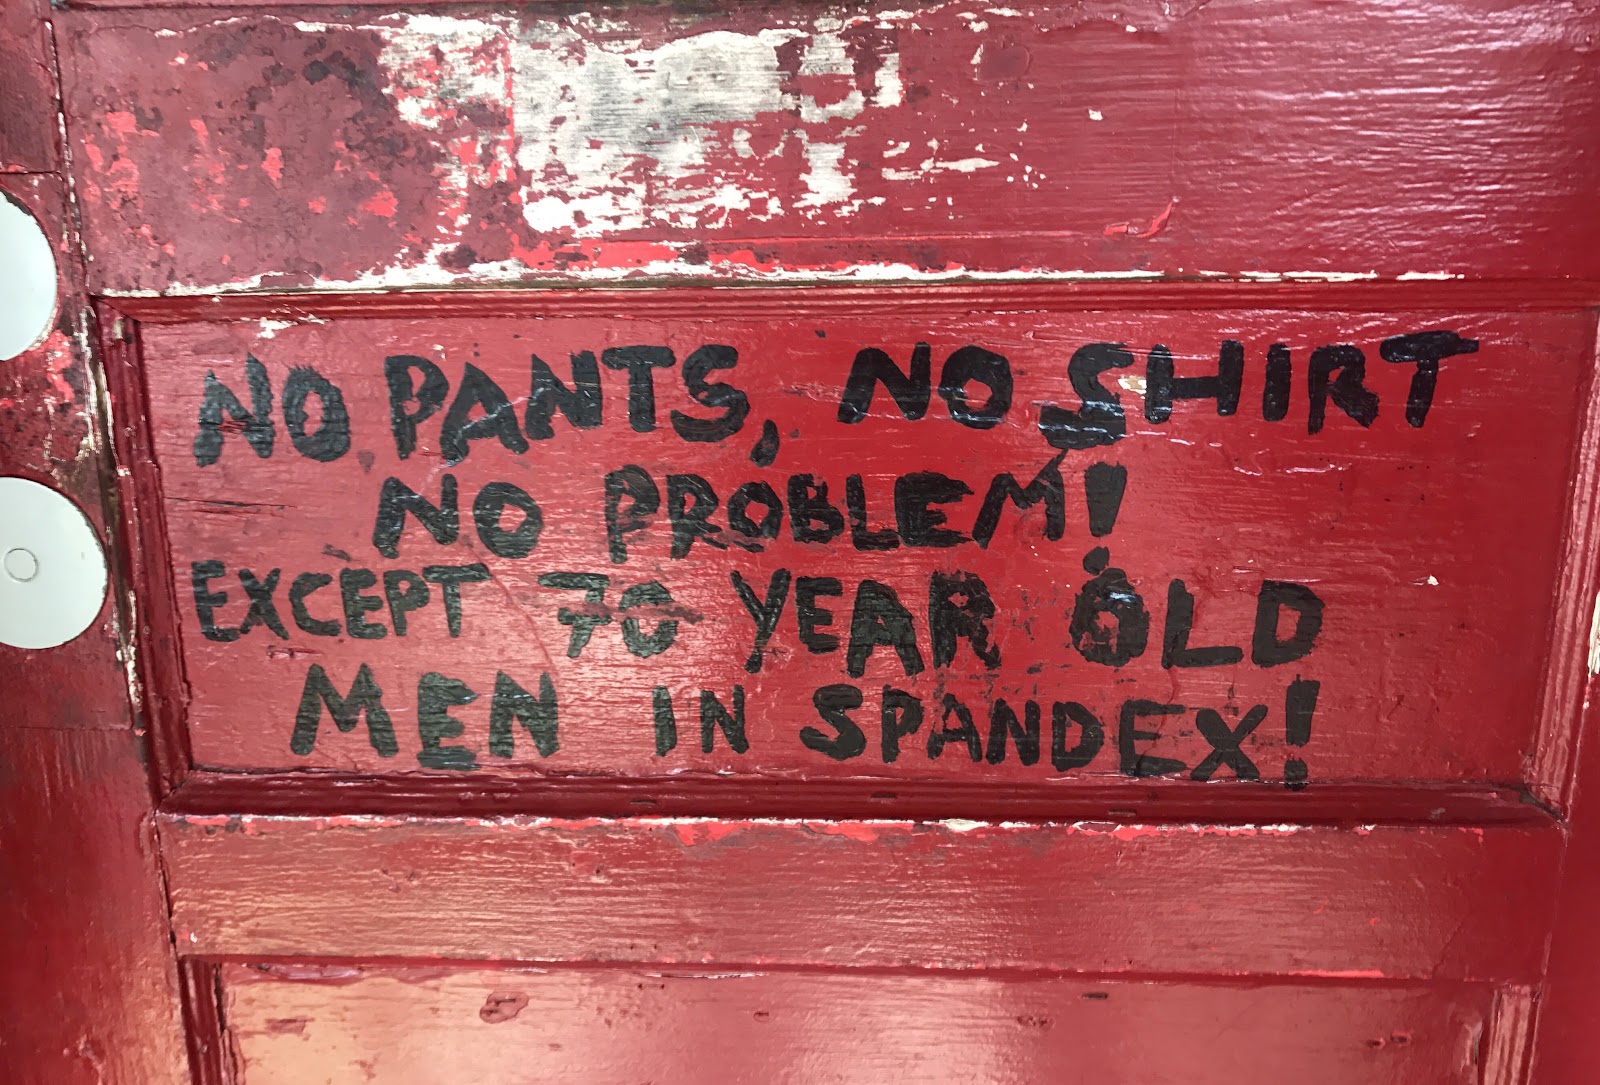 NO PANTS, NO SHIRT
NO PROBLEM!
EXCEPT 70 YEAR OLD
MEN IN SPANDEX!